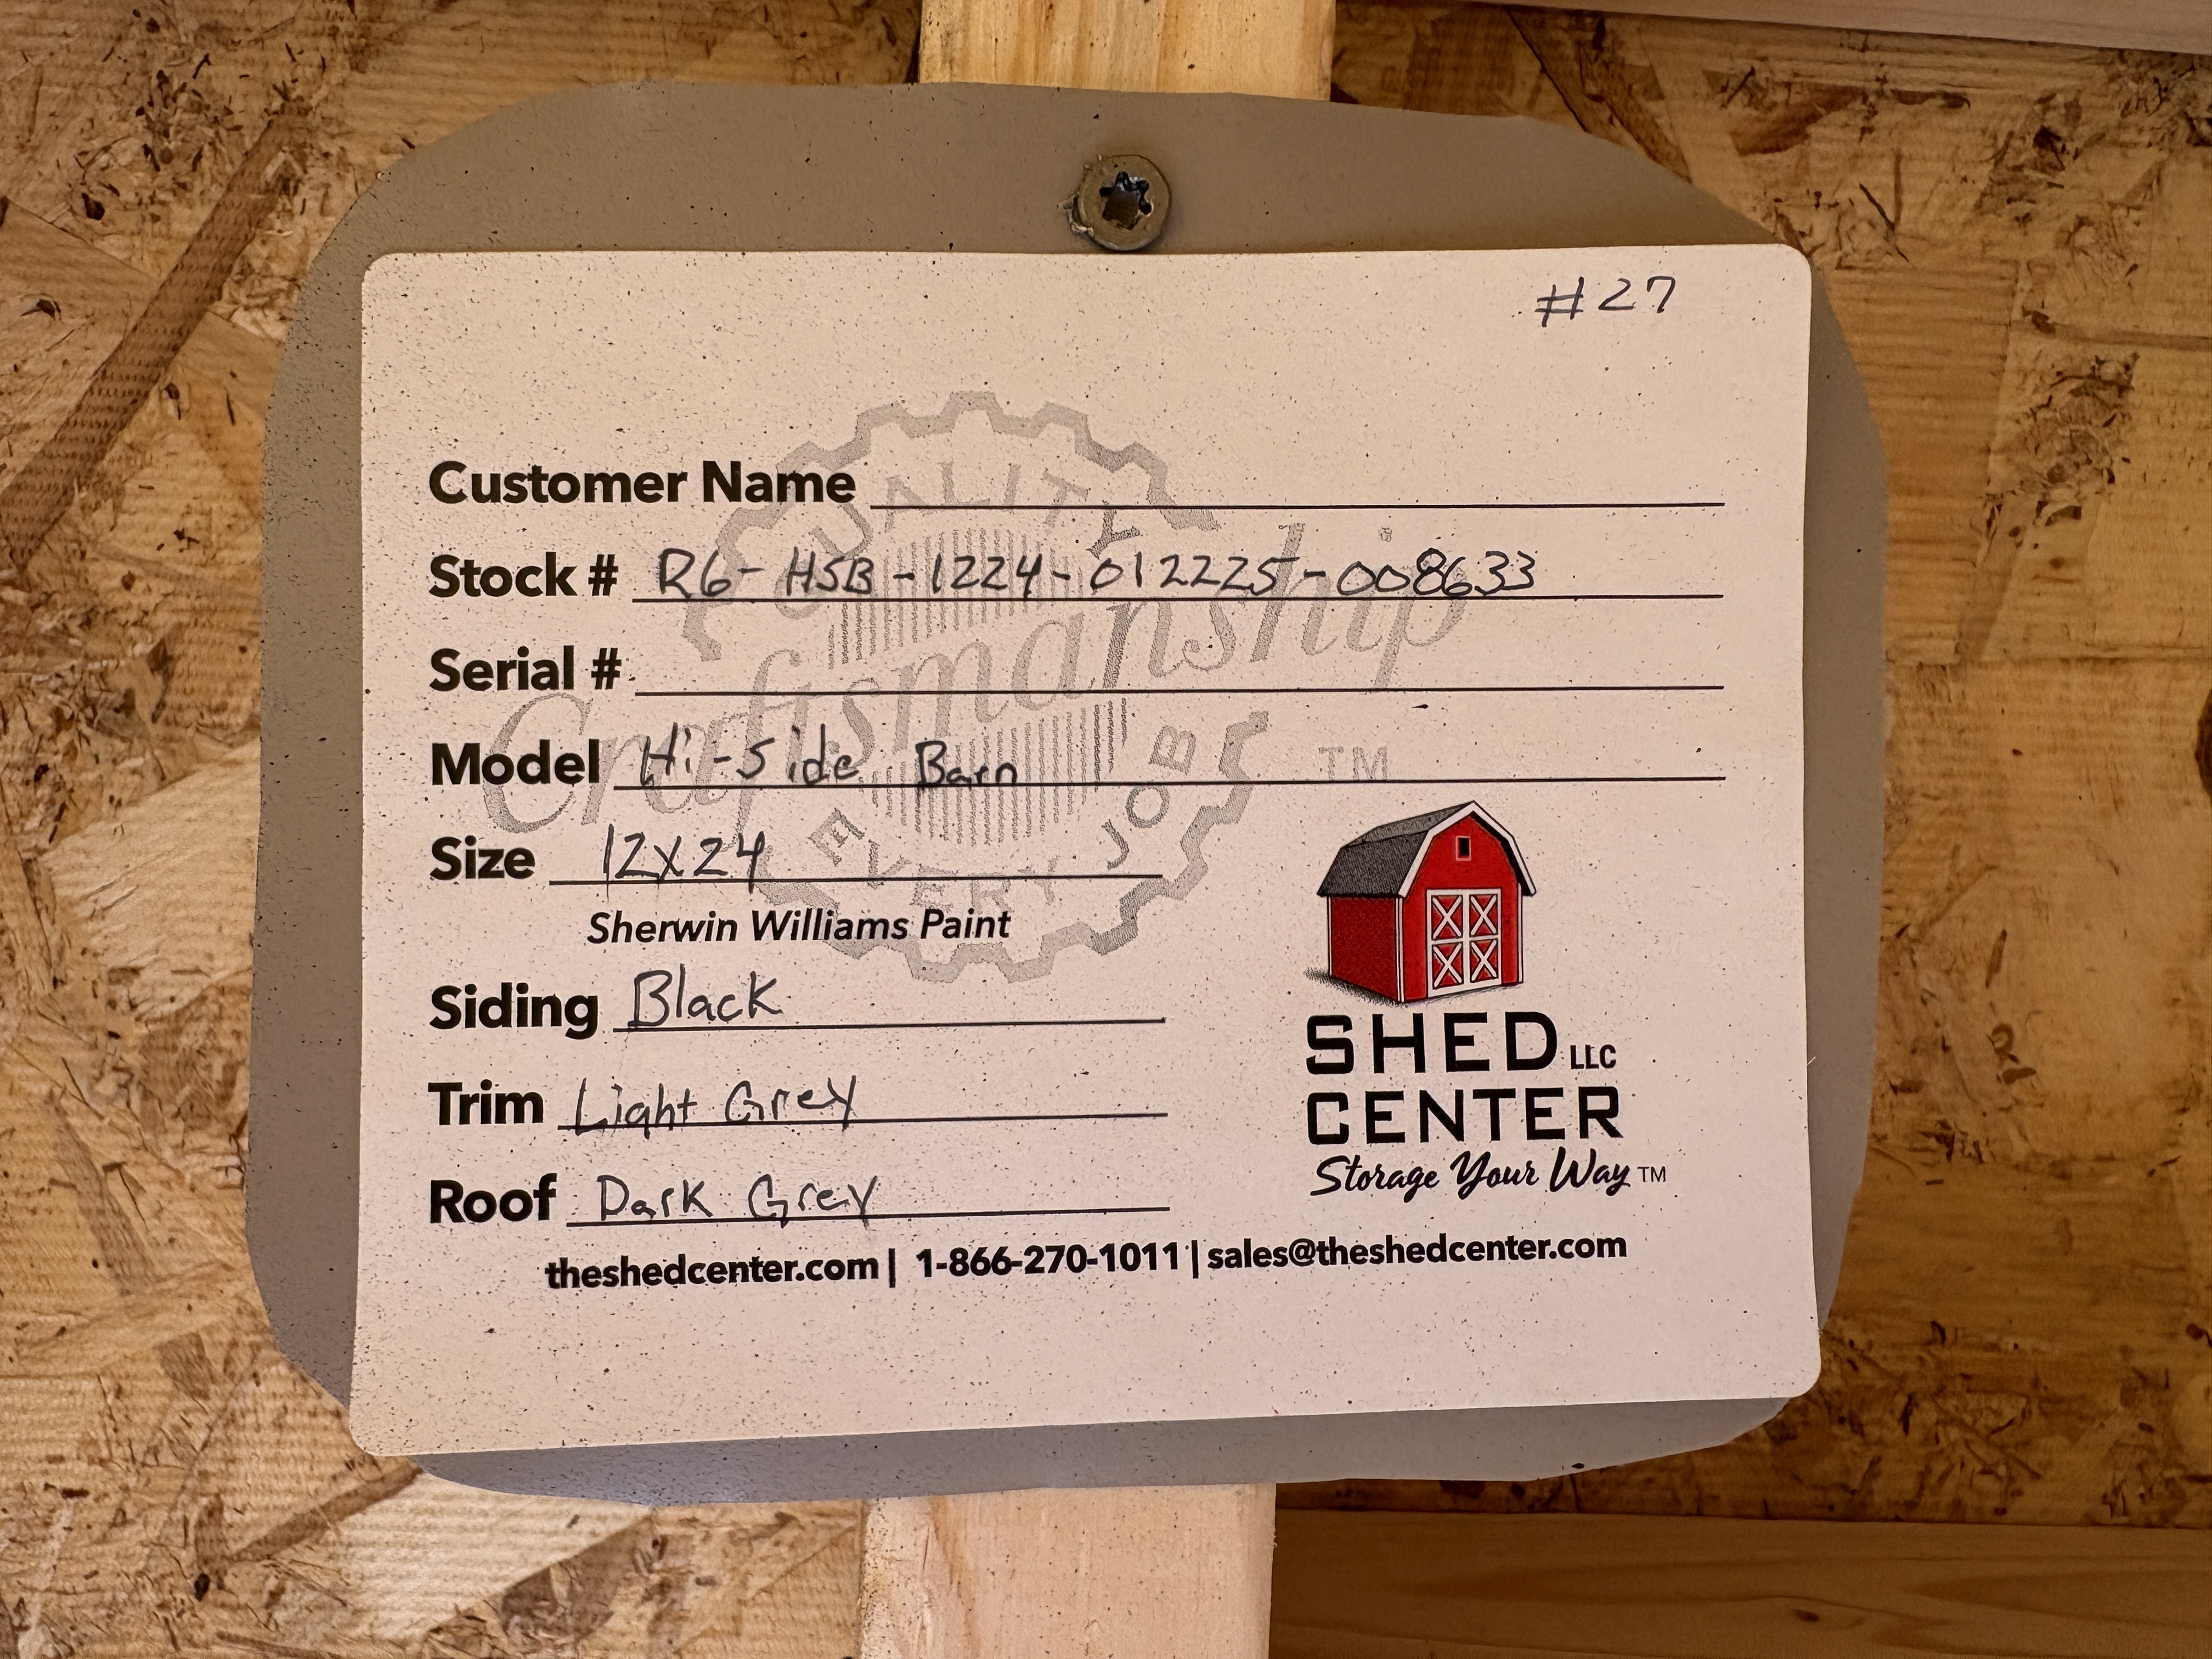 #27
Customer Name
Stock # R6-HSB-1224-012225-008633
Serial #
Model Hi-Side Barn
Size 12x24
Sherwin Williams Paint
Siding Black
Trim Light Grey
Roof Dark Grey
QUALITY
Craftsmanship TM
EVERY JOB
SHED LLC
CENTER
Storage Your Way TM
theshedcenter.com | 1-866-270-1011 | sales@theshedcenter.com